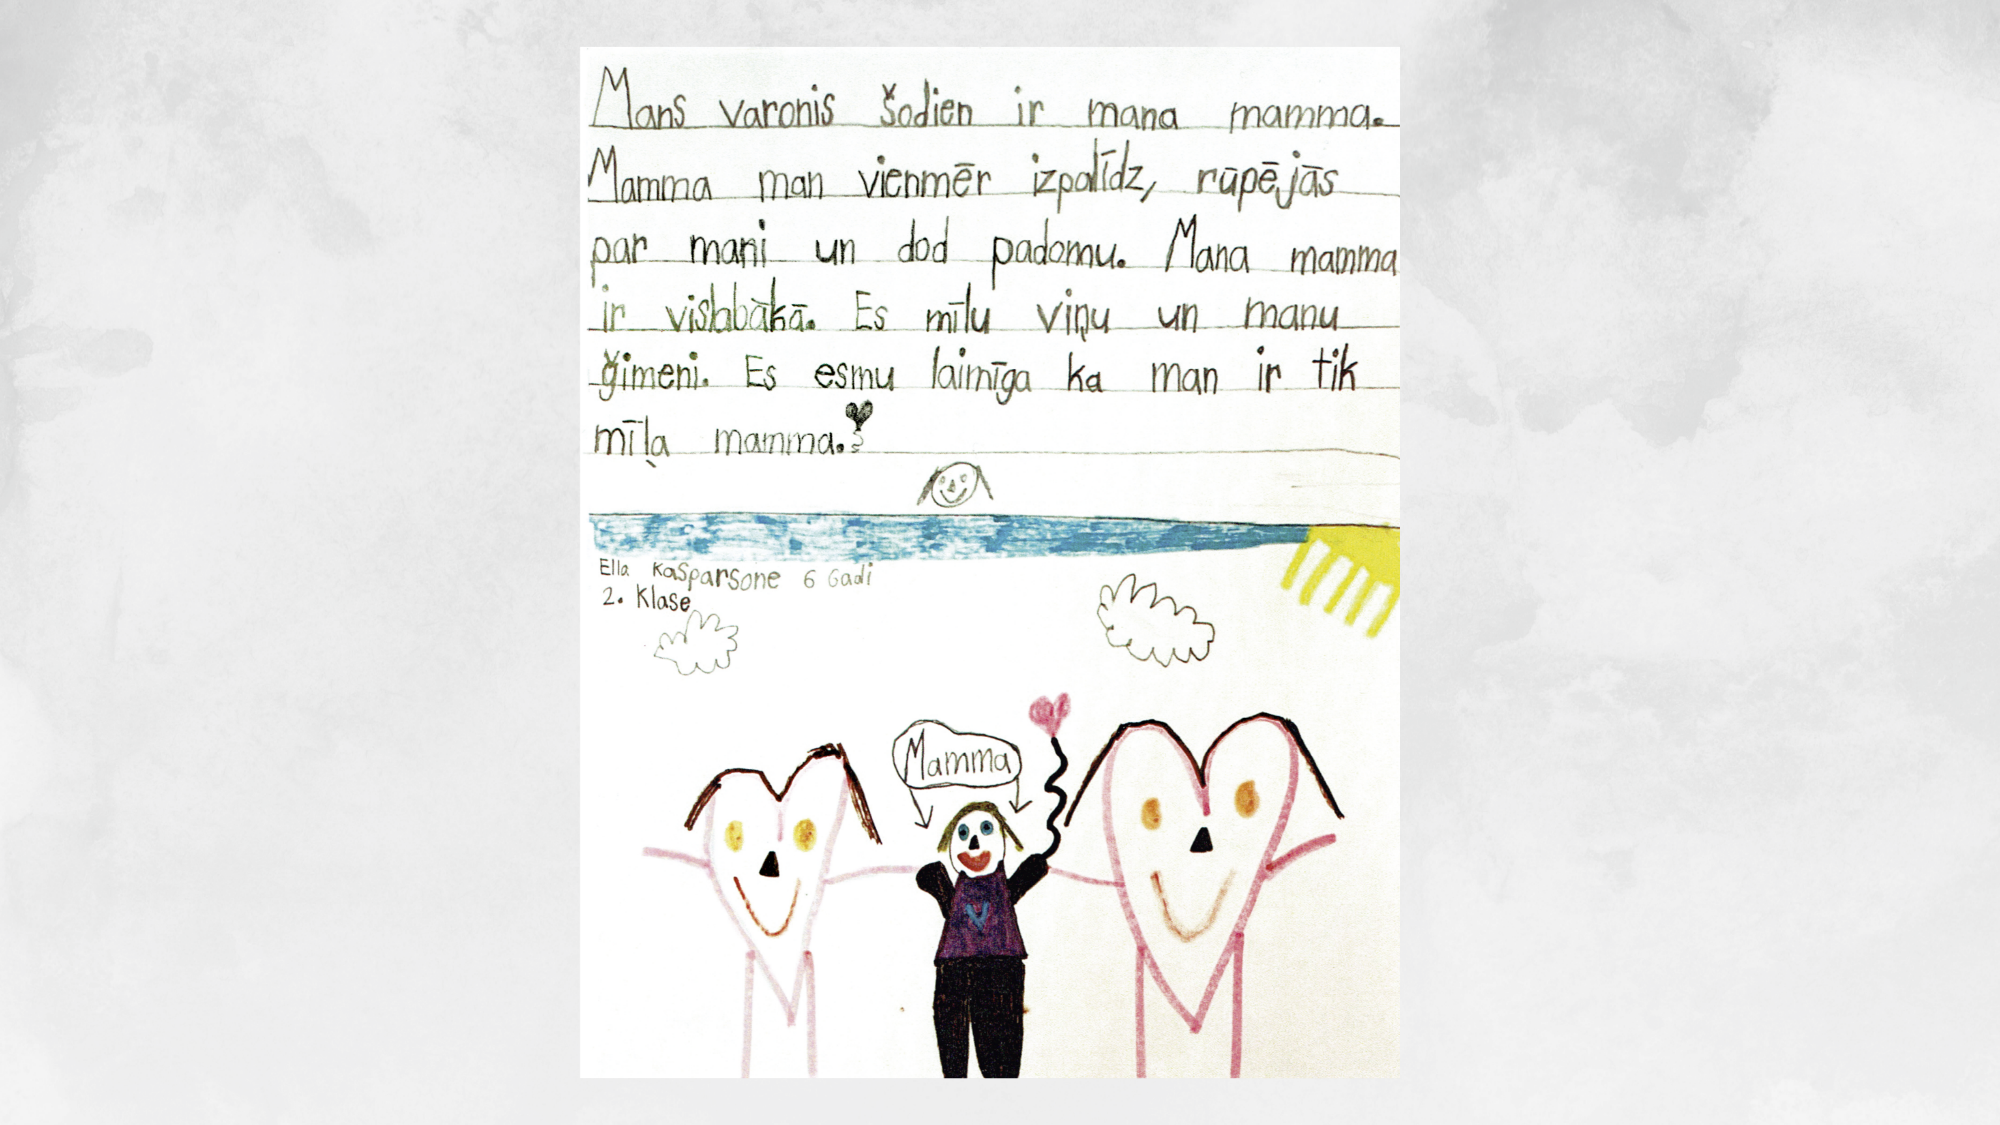 Mans varonis šodien ir mana mamma.
Mamma man vienmēr izpalīdz, rūpējās
par mani un dod padomu. Mana mamma
ir vislabākā. Es mīlu viņu un manu
ģimeni. Es esmu laimīga ka man ir tik
mīļa mamma.
Ella Kasparsone 6 Gadi
2. Klase
Mamma
V